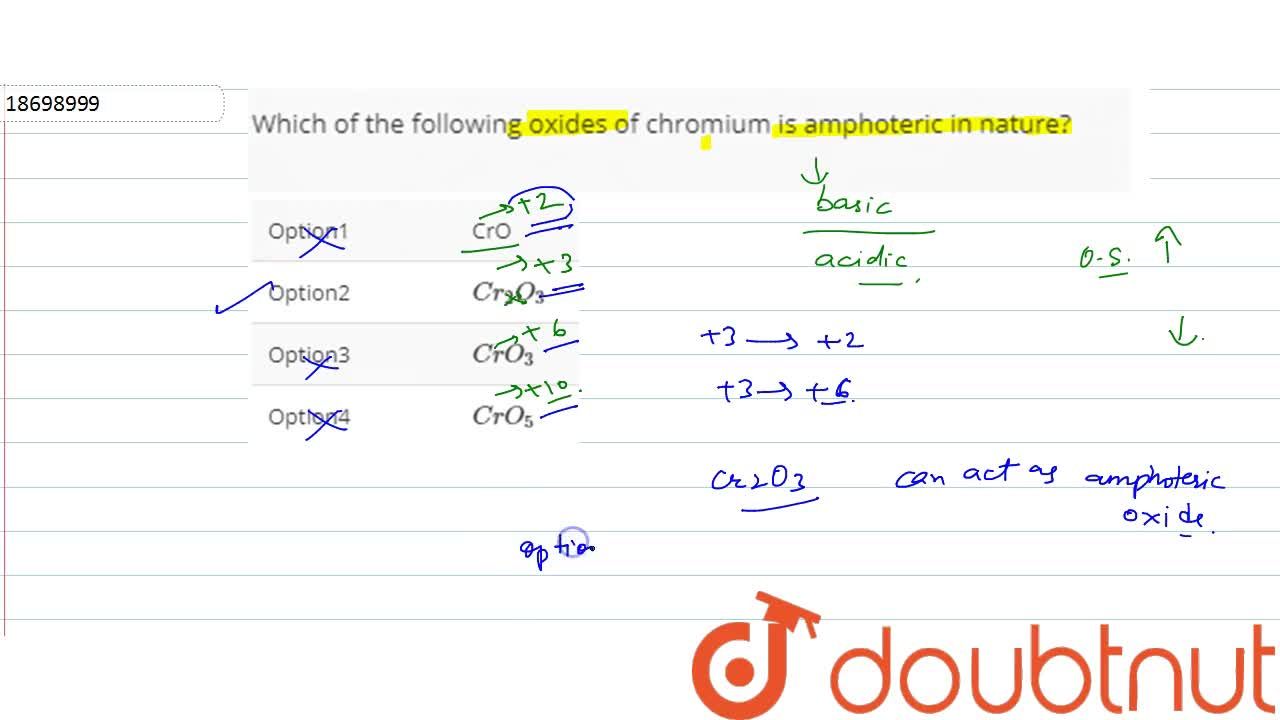 18698999
Which of the following oxides of chromium is amphoteric in nature?
↓
basic
acidic.
O.S. ↑
↓.
→ +2
Option1 CrO
→ +3
Option2 Cr₂O₃
→ +6
Option3 CrO₃
→ +10.
Option4 CrO₅
+3 → +2
+3 → +6.
Cr2O3 can act as amphoteric
oxide.
optio
doubtnut